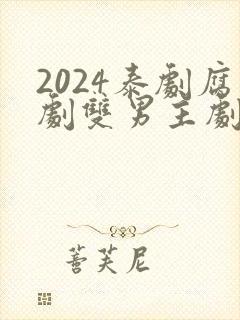 2024泰劇腐
劇雙男主劇
蓍芙尼